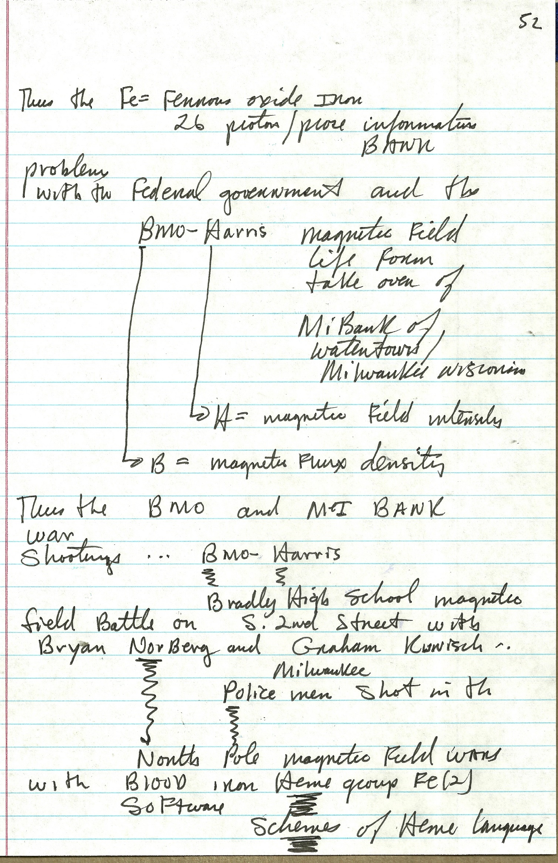 52
Thus the Fe= Ferrous oxide Iron
26 proton/prose information
BANK
problem
with the Federal government and the
BMO-Harris magnetic Field
life Form
take over of
MiBank of
watertown/
Milwaukee wisconsin
H = magnetic Field intensity
B = magnetic Flux density
Thus the BMO and M&I BANK
war
Shootings ... BMO- Harris
Bradly High School magnetic
field Battle on S. 2nd Street with
Bryan NorBerg and Graham Kunisch ..
Milwaukee
Police men shot in the
North Pole magnetic Field wars
with Blood iron Heme group Fe(2)
Software
Schemes of Heme Language